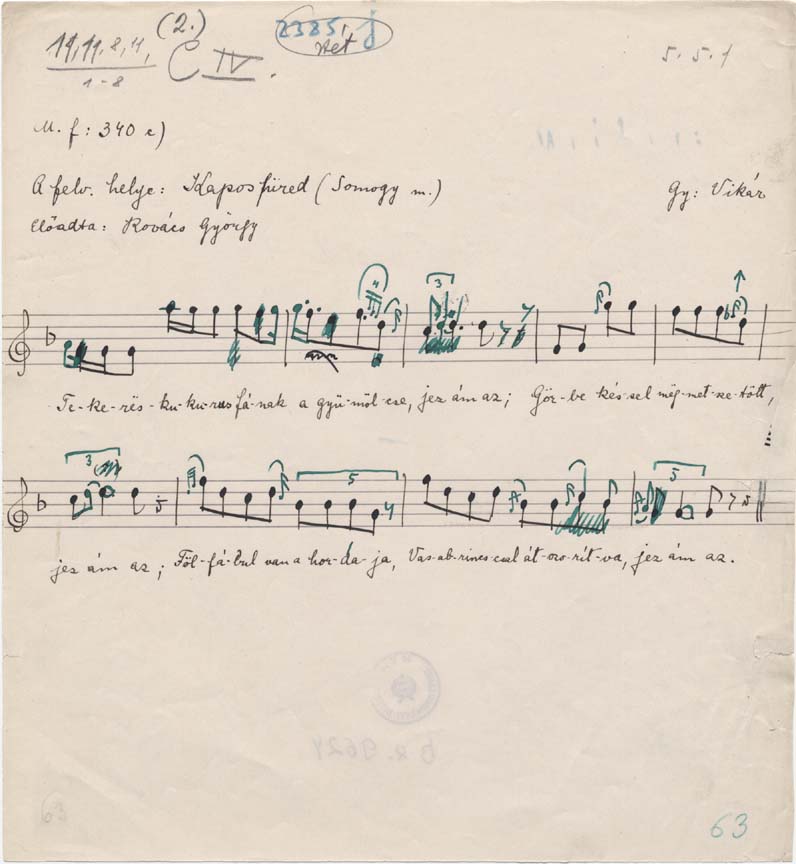 (2.)
11, 11, 8, 11,
1-8
C IV.
2385, j
5. 5. 1
M. f: 340 c)
A felv. helye: Kaposfüred (Somogy m.)
Gy: Vikár
Előadta: Kovács György
Te-ke-rës-ku-ku-rus fá-nak a gyü-möl-cse, jez ám az; Gör-be kés-sel mëg-met-sze-tött,
jez ám az; Föl-fá-bul van a hor-da-ja, Vas-ab-rincs-csal át-szo-rít-va, jez ám az.
63